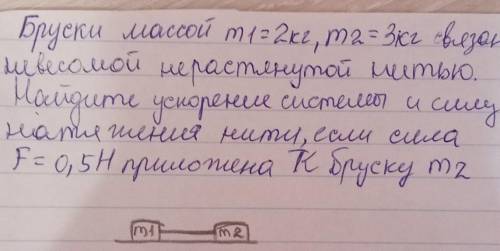 Бруски массой m1=2кг, m2=3кг связан
невесомой нерастянутой нитью.
Найдите ускорение системы и силу
натяжения нити, если сила
F=0,5Н приложена к бруску m2
m1 m2